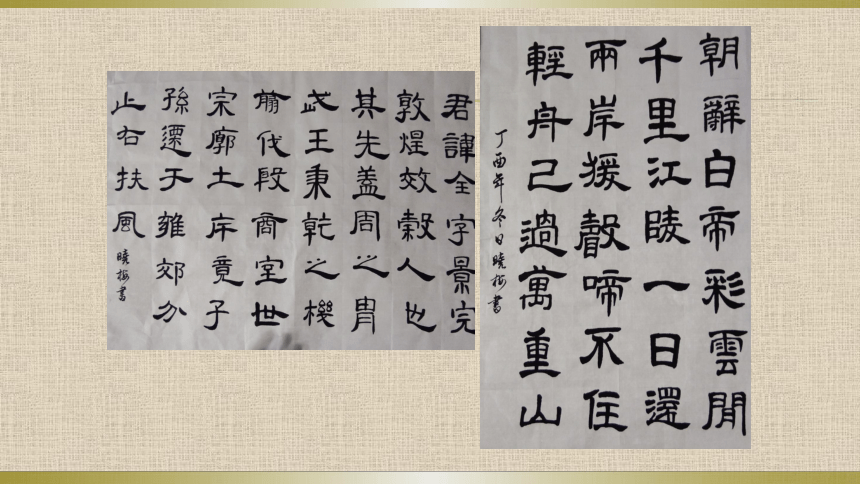 君諱全字景完
敦煌效穀人也
其先蓋周之胄
武王秉乾之機
翦伐殷商室世
宗廓土斥竟子
孫遷于雍郊分
止右扶風
曉梅書
朝辭白帝彩雲閒
千里江陵一日還
兩岸猨聲啼不住
輕舟已過萬重山
丁酉年冬日曉梅書